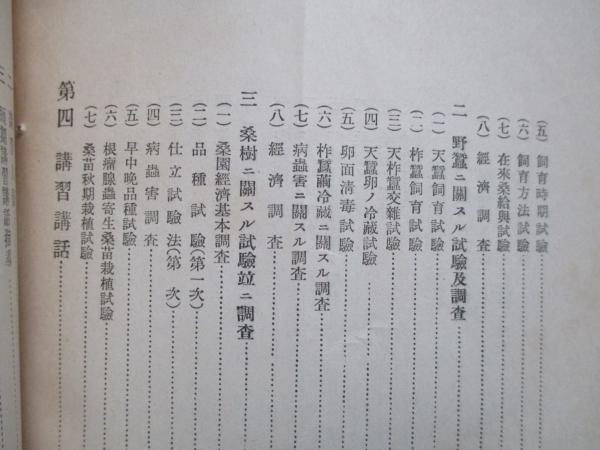 (五) 飼育時期試驗
(六) 飼育方法試驗
(七) 在來桑給與試驗
(八) 經濟調査
二 野蠶ニ關スル試驗及調査
(一) 天蠶飼育試驗
(二) 柞蠶飼育試驗
(三) 天柞蠶交雜試驗
(四) 天蠶卵ノ冷藏試驗
(五) 卵面淸毒試驗
(六) 柞蠶繭冷藏ニ關スル調査
(七) 病蟲害ニ關スル調査
(八) 經濟調査
三 桑樹ニ關スル試驗竝ニ調査
(一) 桑園經濟基本調査
(二) 品種試驗(第一次)
(三) 仕立試驗法(第 次)
(四) 病蟲害調査
(五) 早中晚品種試驗
(六) 根瘤腺蟲寄生桑苗栽植試驗
(七) 桑苗秋期栽植試驗
第四 講習講話